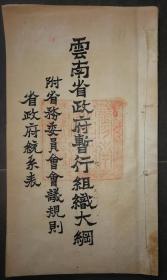 雲南省政府暫行組織大綱
附省務委員會會議規則
省政府統系表